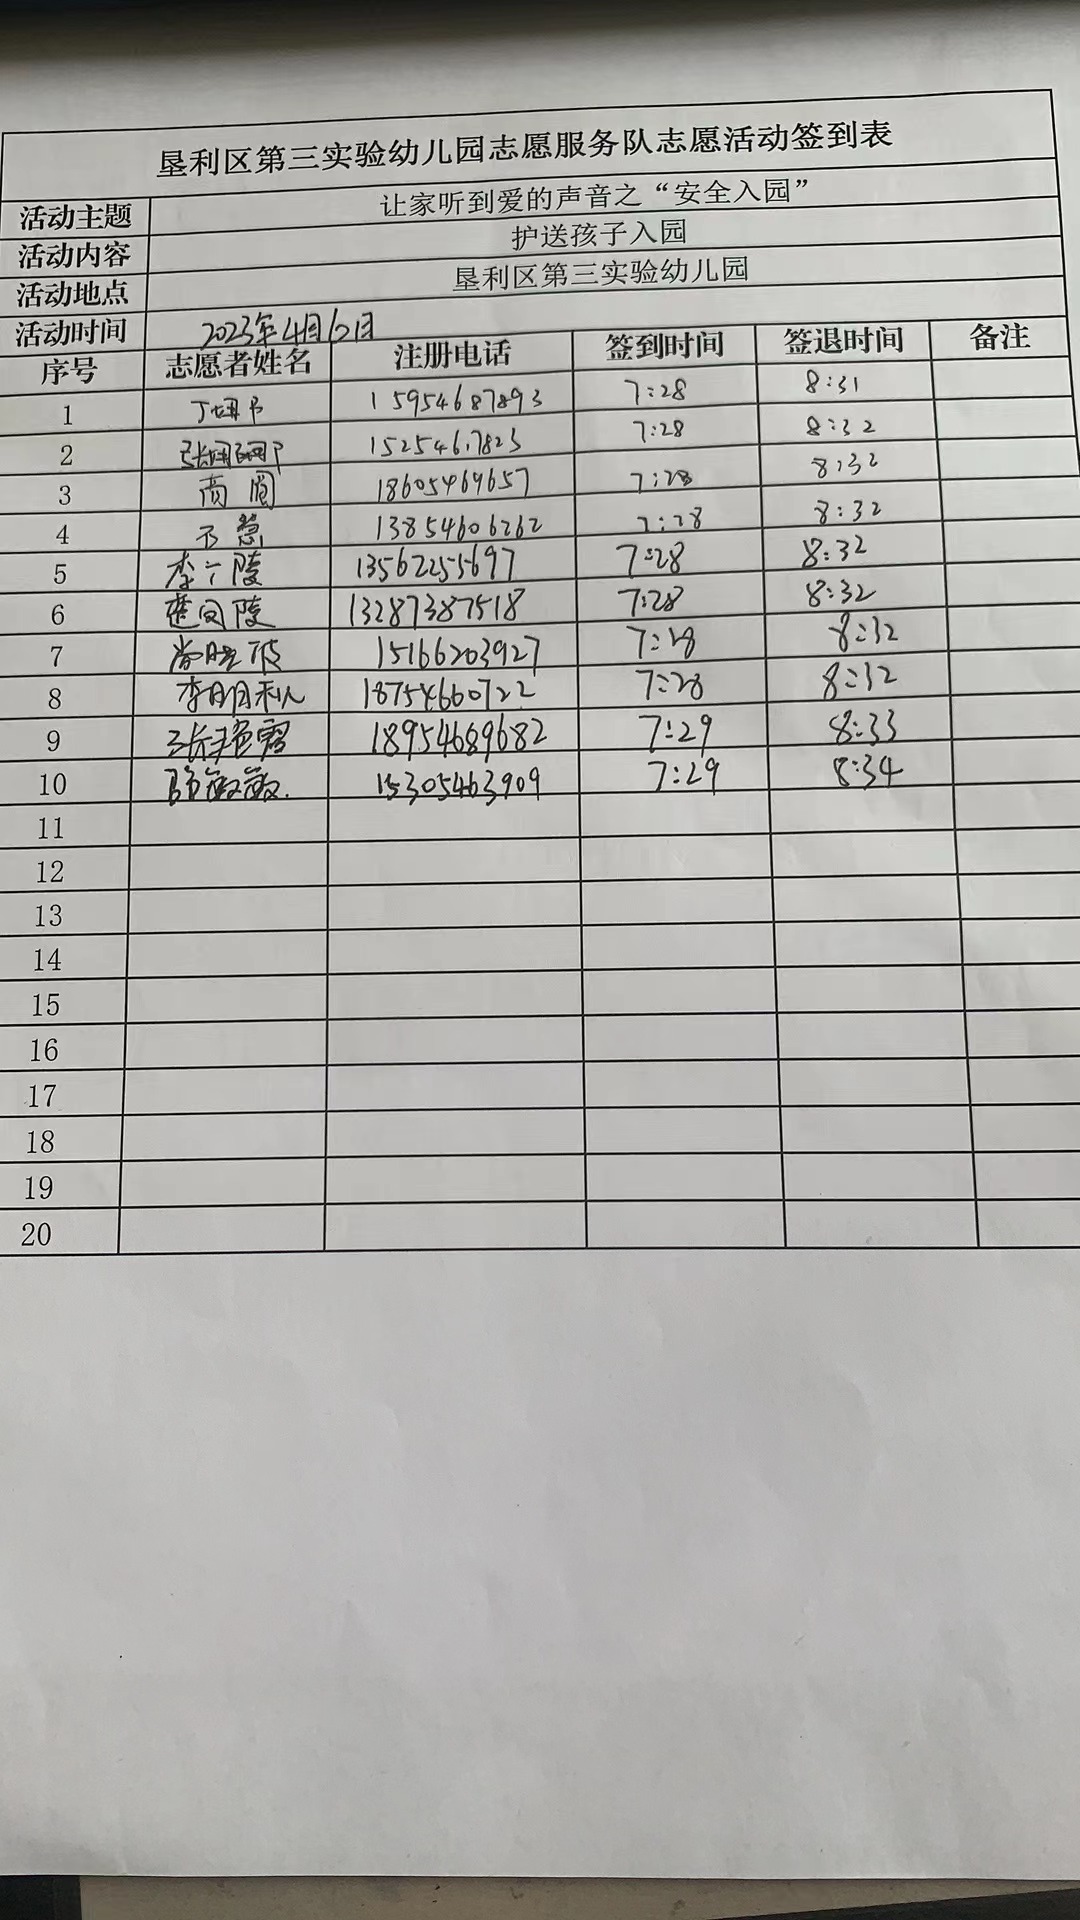 垦利区第三实验幼儿园志愿服务队志愿活动签到表
活动主题 让家听到爱的声音之“安全入园”
活动内容 护送孩子入园
活动地点 垦利区第三实验幼儿园
活动时间 2023年4月12日
序号 志愿者姓名 注册电话 签到时间 签退时间 备注
1 15954687893 7:28 8:31
2 7:28 8:32
3 商眉 18605469657 7:28 8:32
4 13854606262 7:28 8:32
5 13562255697 7:28 8:32
6 13287387518 7:28 8:32
7 15166203927 7:28 8:32
8 李月利 18754660722 7:28 8:32
9 张艳霞 18954689682 7:29 8:33
10 陈敏敏 15305463909 7:29 8:34
11
12
13
14
15
16
17
18
19
20